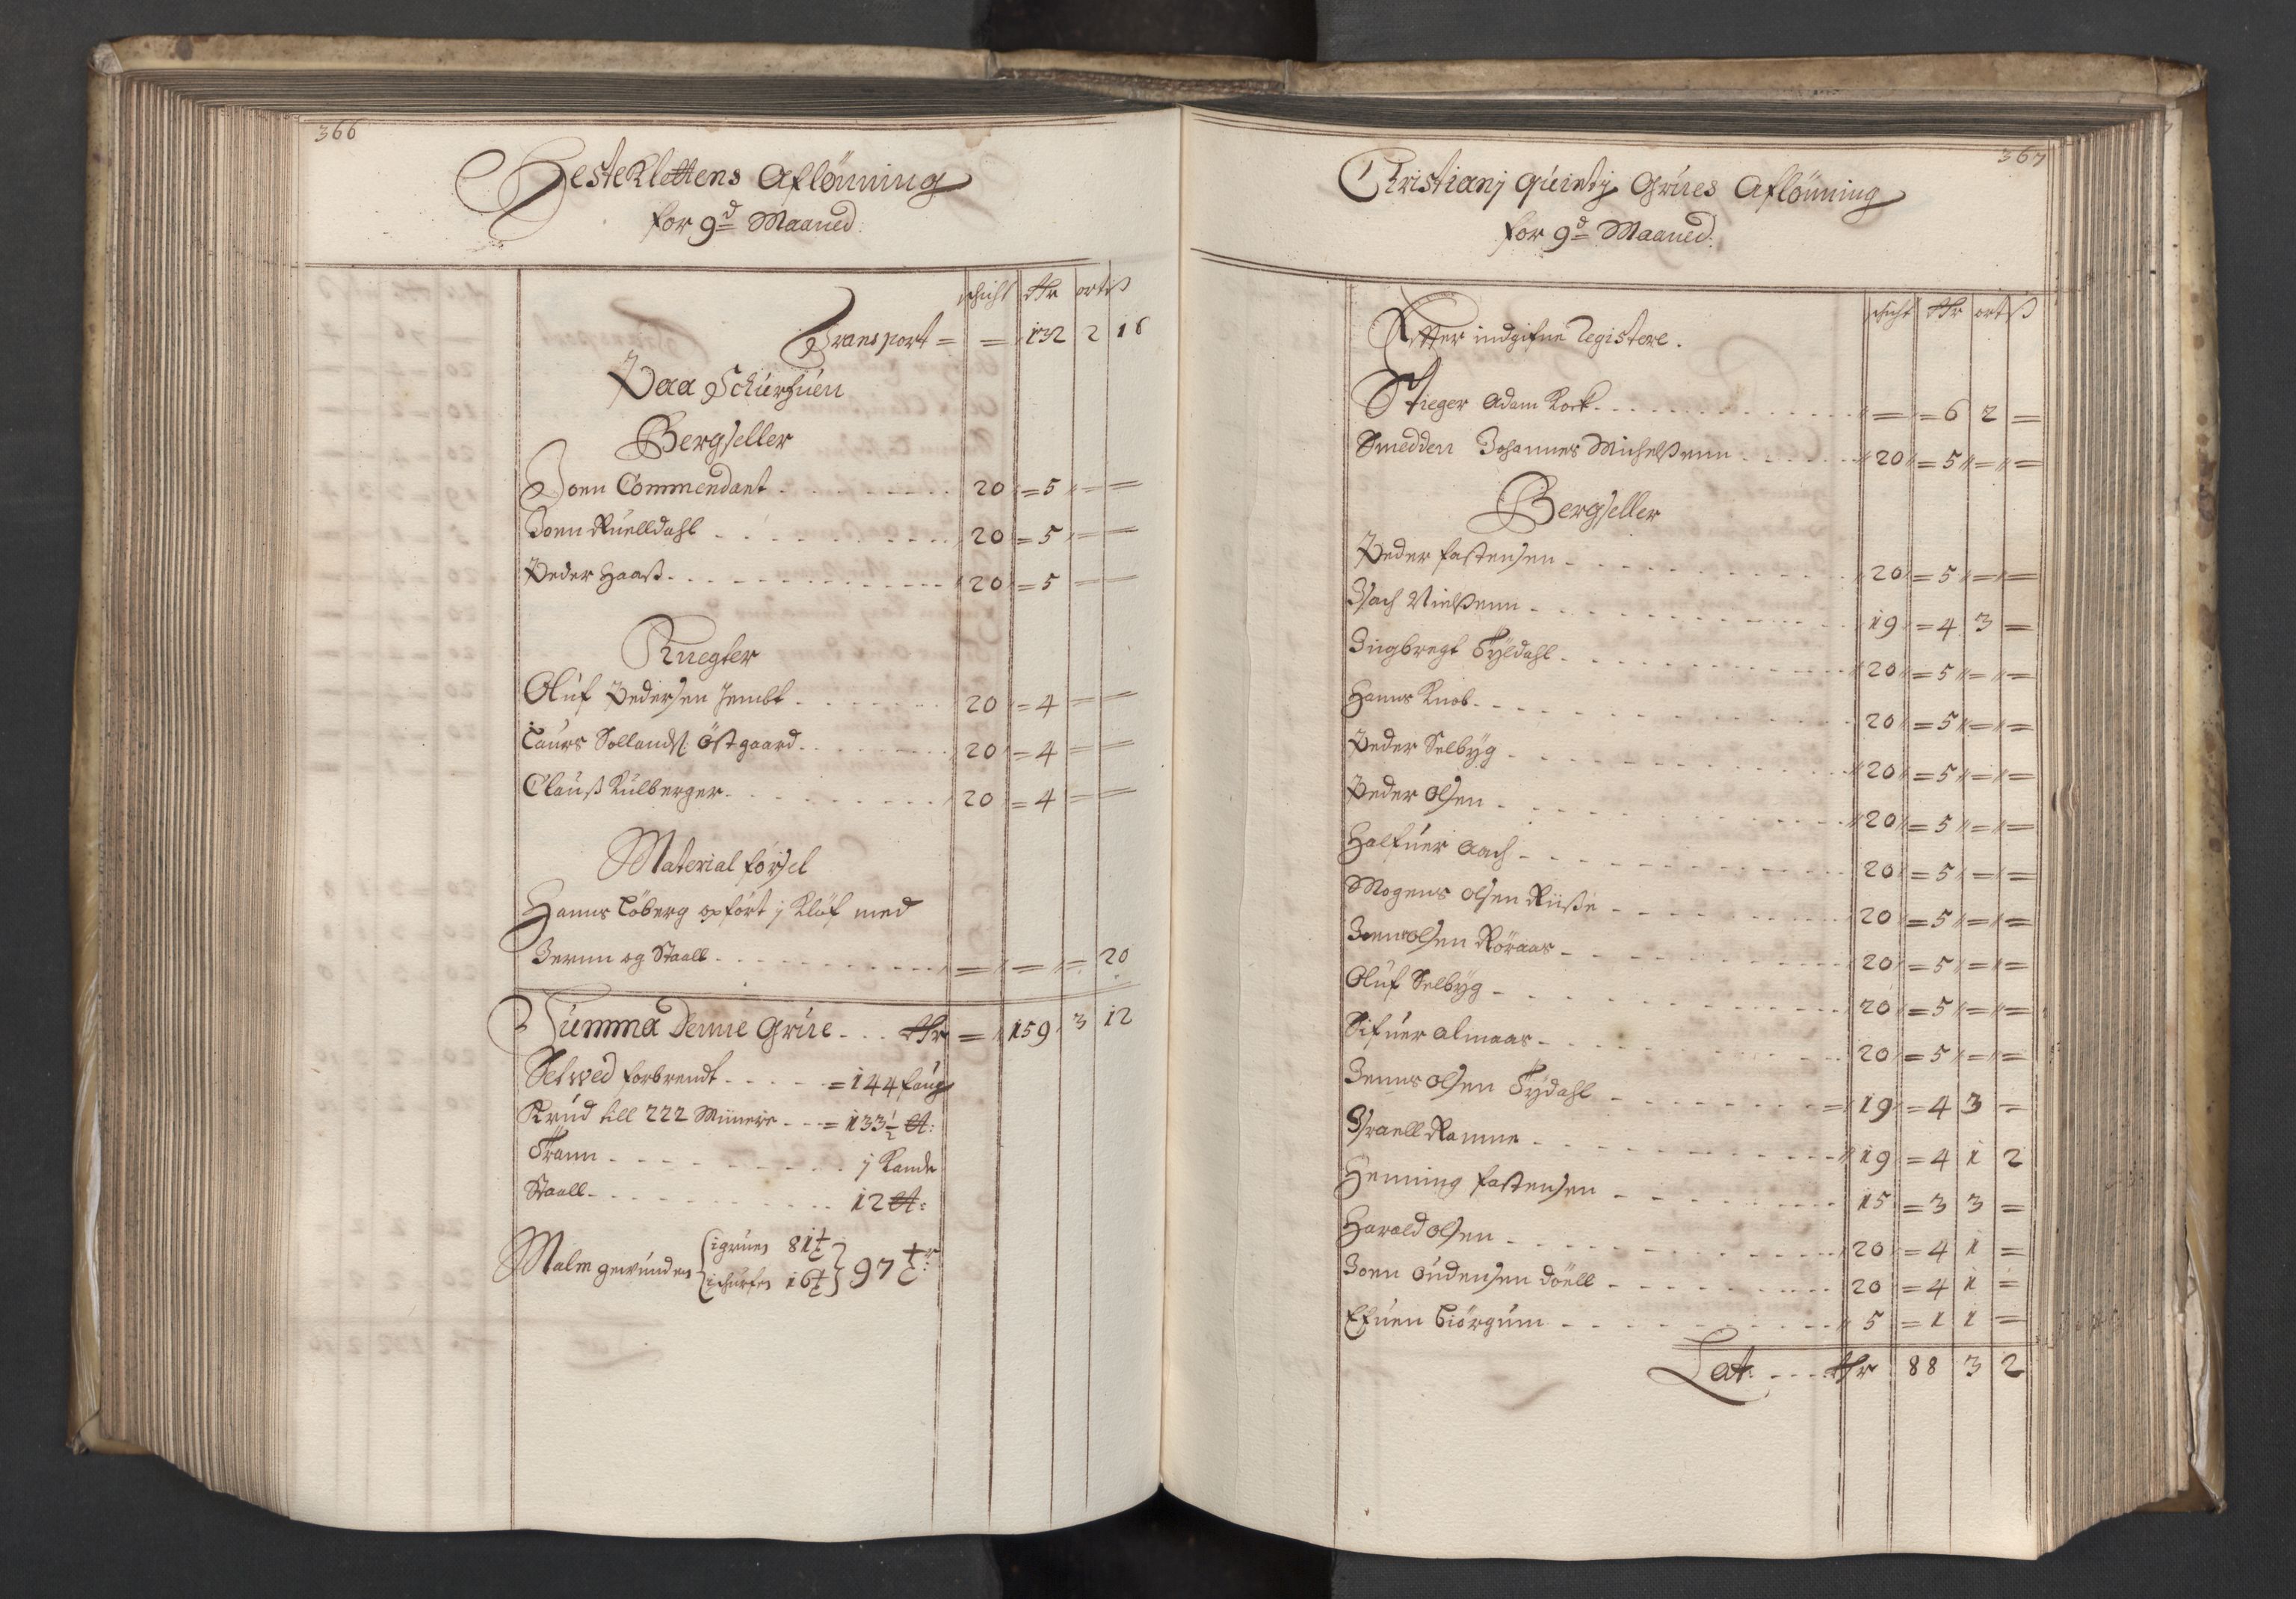 366
HesteKlettens Aflönning
for 9d Maaned:
schicht Rdr ort ß
Transport = = 132 2 16
Paa Schürfuen
Bergseller
Joen Commendant - - - 20 = 5 = =
Joen Ruelldahl - - - 20 = 5 = =
Peder Haaß - - - 20 = 5 = =
Knegter
Oluf Pedersen Jembt - - - 20 = 4 = =
Laurs Sollands: Östgaard - - - 20 = 4 = =
Clauß Kulberger - - - 20 = 4 = =
Material förssel
Hanns Löberg opfört j Klöf med
Jernn og Staall - - - = = = 20
Summa Denne Grue - - - Rdr = 159 3 12
Setwed forbrendt - - - = 144 faug
Krud till 222 Minere - - - = 133½ ℔:
Trann - - - j Kande
Staall - - - 12 ℔:
Malm gewunden {igruen 81 t
ischurfen 16 t} 97 tr:
367
Christianj Quintj Grues Aflönning
for 9d Maaned:
schicht Rdr ort ß
Efter indgifne Registere.
Stieger Adam Kock - - - = = 6 2 =
Smedden Johannes Michelßenn - - - 20 = 5 = =
Bergseller
Peder fastensen - - - 20 = 5 = =
Isach Nielßenn - - - 19 = 4 3 =
Ingbregt Tyldahl - - - 20 = 5 = =
Hanns Knob - - - 20 = 5 = =
Peder Selbyg - - - 20 = 5 = =
Peder Olsen - - - 20 = 5 = =
Halfuer Aach - - - 20 = 5 = =
Mogens Olsen Riiße - - - 20 = 5 = =
Jens Olsen Röraas - - - 20 = 5 = =
Oluf Selbyg - - - 20 = 5 = =
Sifuer Almaas - - - 20 = 5 = =
Jenns Olsen Tydahl - - - = 19 = 4 3 =
Israell Ramme - - - 19 = 4 1 2
Henning fastensen - - - 15 = 3 3 =
Harald Olsen - - - 20 = 4 1 =
Joen Oudensen Döell - - - 20 = 4 1 =
Efuen Giörgum - - - 5 = 1 1 =
Lat: - - - Rdr 88 3 2